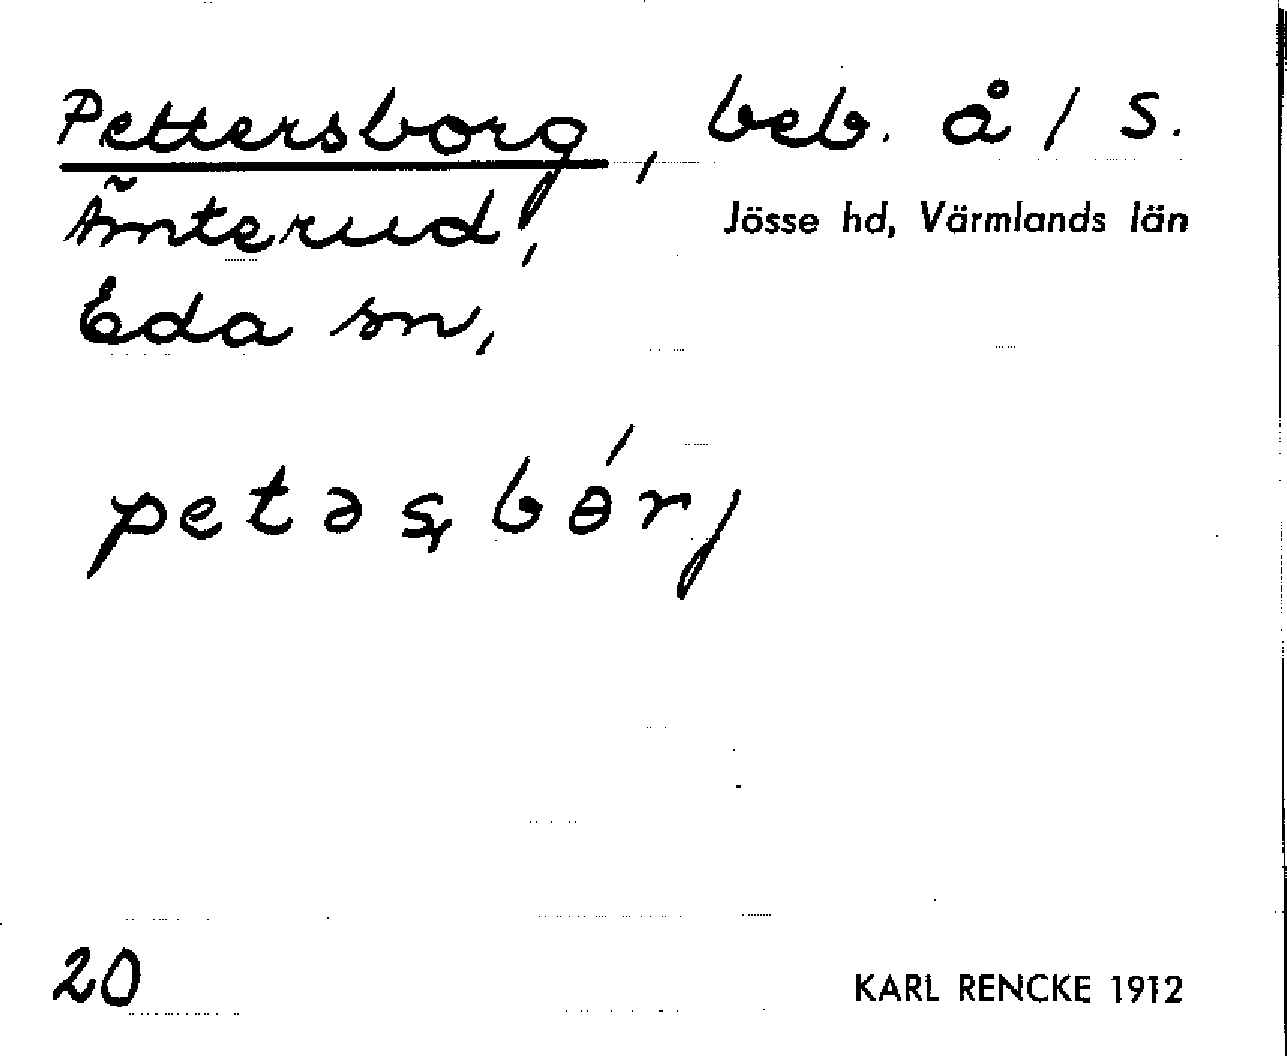 Pettersborg, beb. å / S.
Ämterud,
Jösse hd, Värmlands län
Eda sn,
petəʂbɵ́rj
20
KARL RENCKE 1912